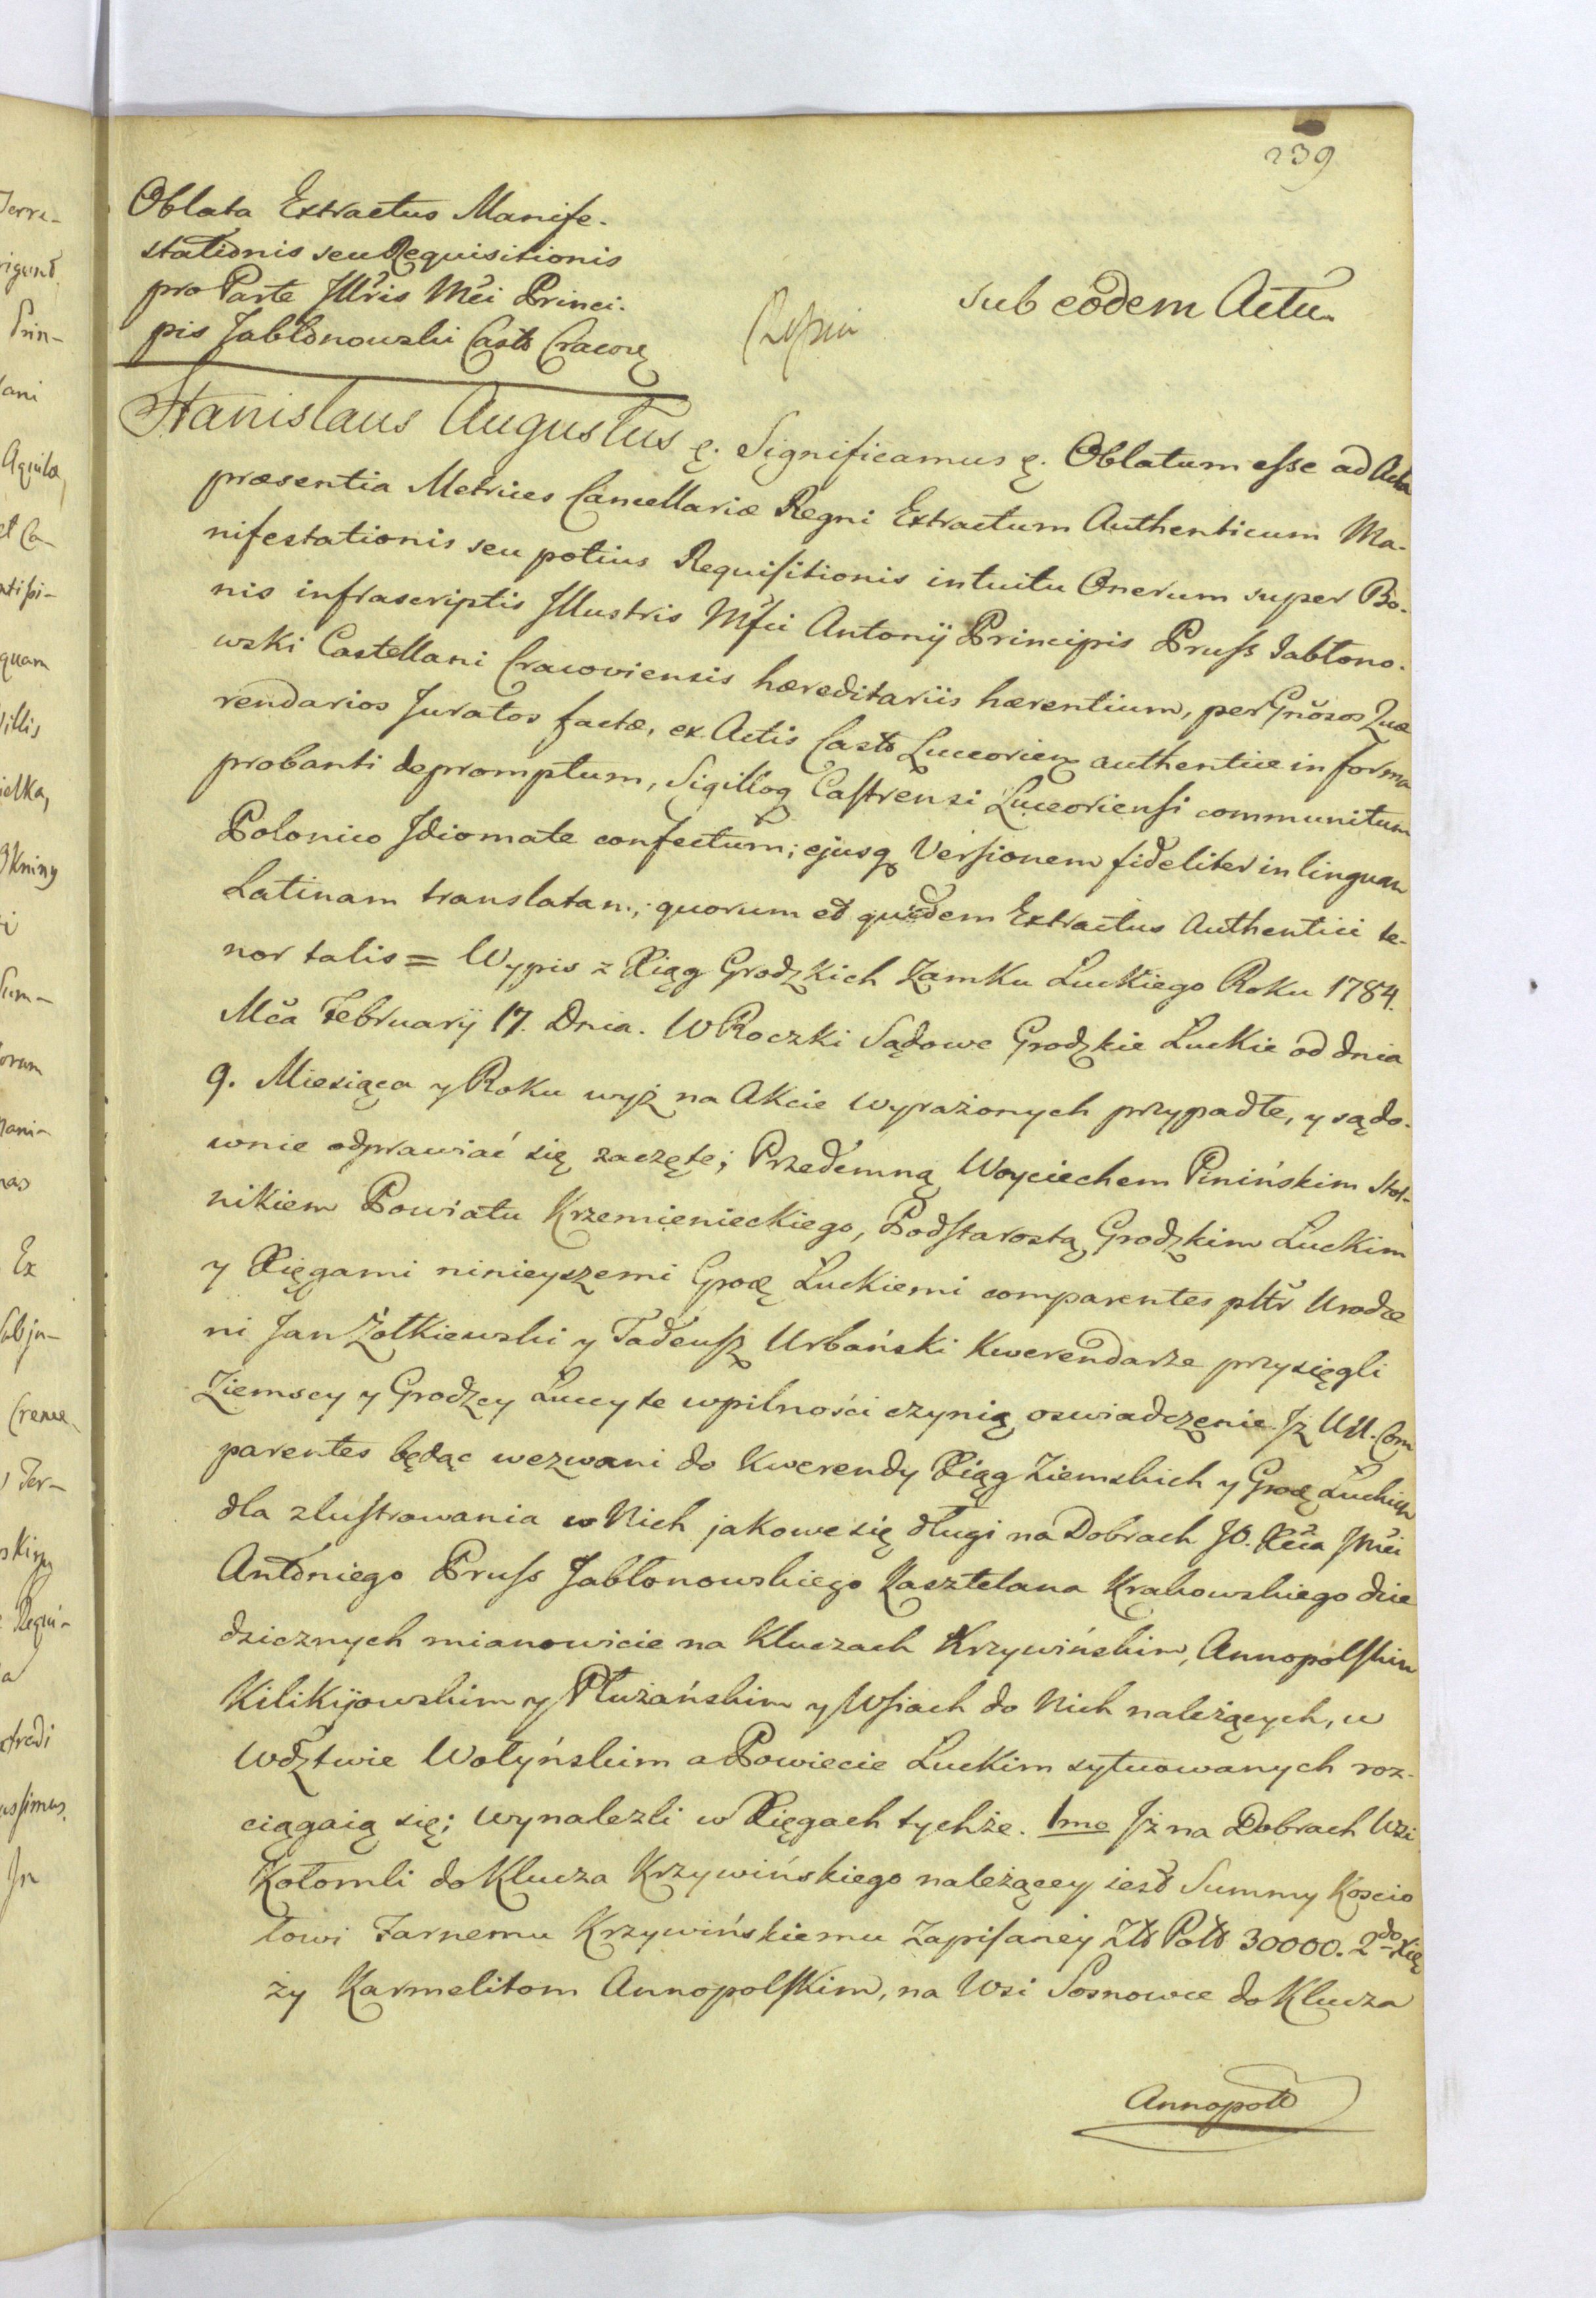 239
Oblata Extractus Manife-
stationis seu Requisitionis
pro Parte Illris Mci Princi-
pis Jabłonowski Castd Cracov
sub eodem Actu.
Stanislaus Augustus &. Significamus &. Oblatum esse ad Acta
præsentia Metrices Cancellariæ Regni Extractum Authenticum Ma-
nifestationis seu potius Requisitionis intuitu Onerum super Bo-
nis infrascriptis Illustris Mfci Antonij Principis Pruss Jabłono-
wski Castellani Cracoviensis hæreditariis hærentium, per Gnosos Quæ
rendarios Juratos factæ, ex Actis Castr Luceorien authentice in forma
probanti depromptum, Sigilloq Castrensi Luceoriensi communitum
Polonico Idiomate confectum; ejusq Versionem fideliter in linguam
Latinam translatam; quorum et quidem Extractus Authentici te-
nor talis = Wypis z Xiąg Grodzkich Zamku Luckiego Roku 1784.
Mca February 17. Dnia. W Roczki Sądowe Grodzkie Luckie od dnia
9. Miesiąca y Roku wyż na Akcie wyrażonych przypadłe, y sądo-
wnie odprawiać się zaczęte; Przedemną Woyciechem Pinińskim Stol-
nikiem Powiatu Krzemienieckiego, Podstarostą Grodzkim Łuckim
y Xięgami ninieyszemi Grodz Łuckiemi comparentes pltr Urodze
ni Jan Żołkiewski y Tadeusz Urbański Kwerendarze przysięgli
Ziemscy y Grodzcy Łuccy te w pilności czynią oswiadczenie. Iż UU. Com
parentes będąc wezwani do Kwerendy Xiąg Ziemskich y Grodz Łuckich
dla zlustrowania w Nich jakowe się długi na Dobrach JO. Xcia Jmci
Antoniego Pruss Jabłonowskiego Kasztelana Krakowskiego dzie
dzicznych mianowicie na Kluczach Krzywińskim, Annopolskim
Kilikijowskim y Płużańskim y Wsiach do Nich należących, w
Wdztwie Wołyńskim a Powiecie Łuckim sytuowanych roz-
ciągaią się; wynalezli w Xięgach tychże. 1mo Iż na Dobrach Wsi
Kołomli do Klucza Krzywińskiego należącey iest Summy Koscio
łowi Farnemu Krzywińskiemu Zapisaney Złt Polt 30000. 2do Xię
ży Karmelitom Annopolskim, na Wsi Sosnowce do Klucza
Annopoll